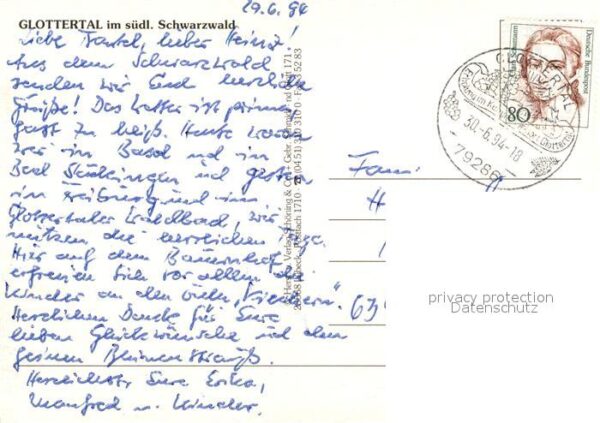 29.6.94
GLOTTERTAL im südl. Schwarzwald
Liebe lieber Heinz!
Aus dem Schwarzwald
senden wir Euch herzliche
Grüße! Das Wetter ist prima,
fast zu heiß. Heute waren
wir in Basel und in
Bad Säckingen und gestern
in Freiburg und im
Glottertaler Waldbad, wir
nützen die herrlichen Tage.
Hier auf dem Bauernhof
erfreuen sich vor allem die
Kinder an den vielen
Herzlichen Dank für Eure
lieben Glückwünsche und den
feinen Blumenstrauß.
Herzlichst Eure Erika,
Manfred u. Kinder.
Verlag Schöning & Co + Gebr. Schmidt
Fam.
H
63
Deutsche Bundespost
80
GLOTTERTAL
30.-6.94-18
79286
privacy protection
Datenschutz